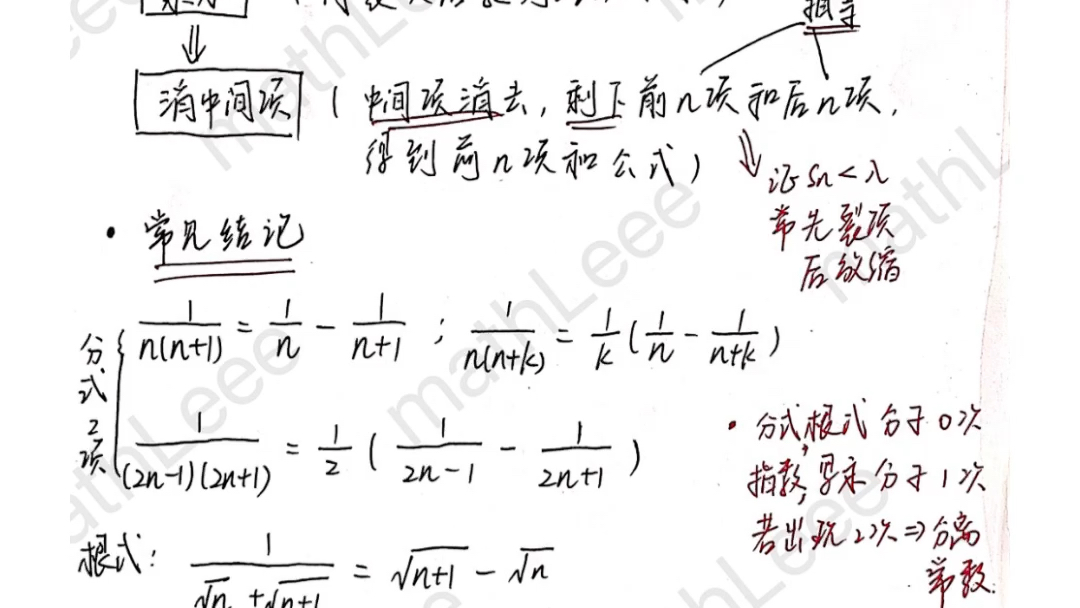 消中间项 (中间项消去, 剩下前n项和后n项,
得到前n项和公式)
证 Sn < λ
常先裂项
后放缩
• 常见结论
分式2项 { 1/n(n+1) = 1/n - 1/(n+1) ; 1/n(n+k) = 1/k (1/n - 1/(n+k))
1/(2n-1)(2n+1) = 1/2 ( 1/(2n-1) - 1/(2n+1) )
• 分式,根式 分子0次
指数, 分子1次
若出现2次 ⇒ 分离
常数.
根式: 1/(√n + √(n+1)) = √(n+1) - √n
mathLeee
mathLeee
mathLeee